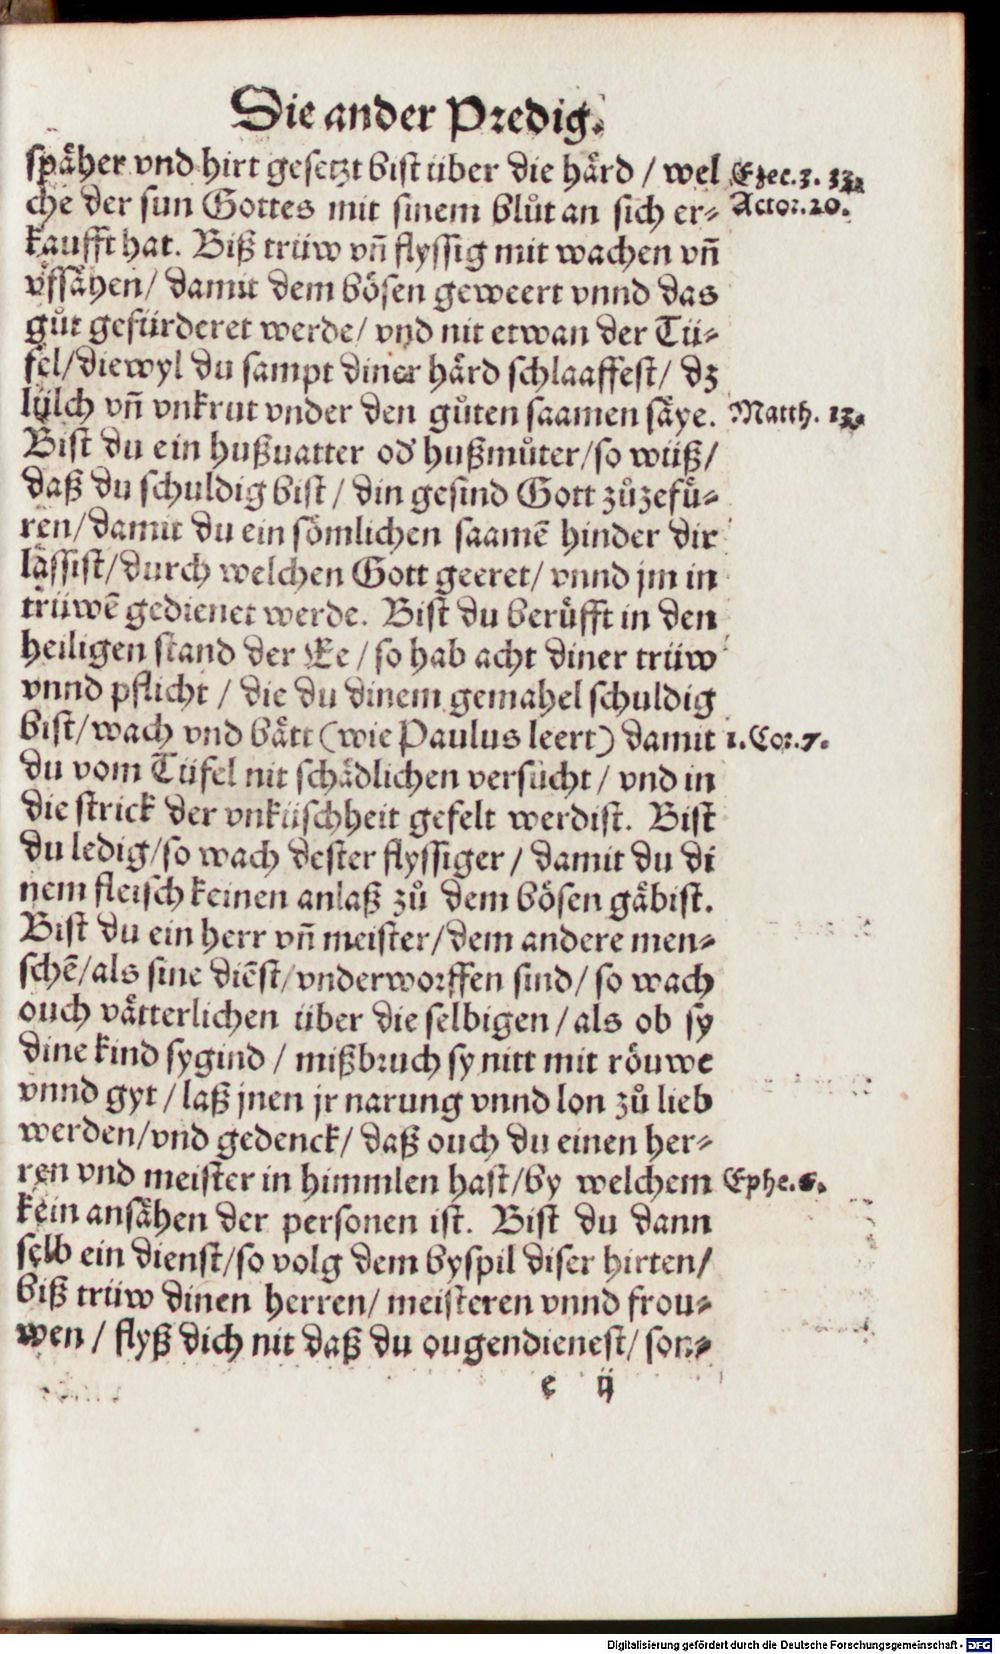 Die ander Predig.
späher vnd hirt gesetzt bist über die härd / wel
che der sun Gottes mit sinem blůt an sich er⸗
kaufft hat. Biß trüw vñ flyssig mit wachen vñ
vfsähen / damit dem bösen geweert vnnd das
gůt gefürderet werde / vnd nit etwan der Tü⸗
fel / diewyl du sampt diner härd schlaaffest / dz
lülch vñ vnkrut vnder den gůten saamen säye.
Bist du ein hußuatter od' hußmůter / so wüß /
daß du schuldig bist / din gesind Gott zůzefü⸗
ren / damit du ein sömlichen saamē hinder dir
lässist / durch welchen Gott geeret / vnnd jm in
trüwē gedienet werde. Bist du berüfft in den
heiligen stand der Ee / so hab acht diner trüw
vnnd pflicht / die du dinem gemahel schuldig
bist / wach vnd bätt (wie Paulus leert) damit
du vom Tüfel nit schädlichen versůcht / vnd in
die strick der vnküschheit gefelt werdist. Bist
du ledig / so wach dester flyssiger / damit du di
nem fleisch keinen anlaß zů dem bösen gäbist.
Bist du ein herr vñ meister / dem andere men⸗
schē / als sine diēst / vnderworffen sind / so wach
ouch vätterlichen über die selbigen / als ob sy
dine kind sygind / mißbruch sy nitt mit röuwe
vnnd gyt / laß jnen jr narung vnnd lon zů lieb
werden / vnd gedenck / daß ouch du einen her⸗
ren vnd meister in himmlen hast / by welchem
kein ansähen der personen ist. Bist du dann
selb ein dienst / so volg dem byspil diser hirten /
biß trüw dinen herren / meisteren vnnd frou⸗
wen / flyß dich nit daß du ougendienest / son⸗
e ij
Ezec. 3. 33.
Actor. 20.
Matth. 13.
1. Cor. 7.
Ephe. 6.
Digitalisierung gefördert durch die Deutsche Forschungsgemeinschaft - DFG